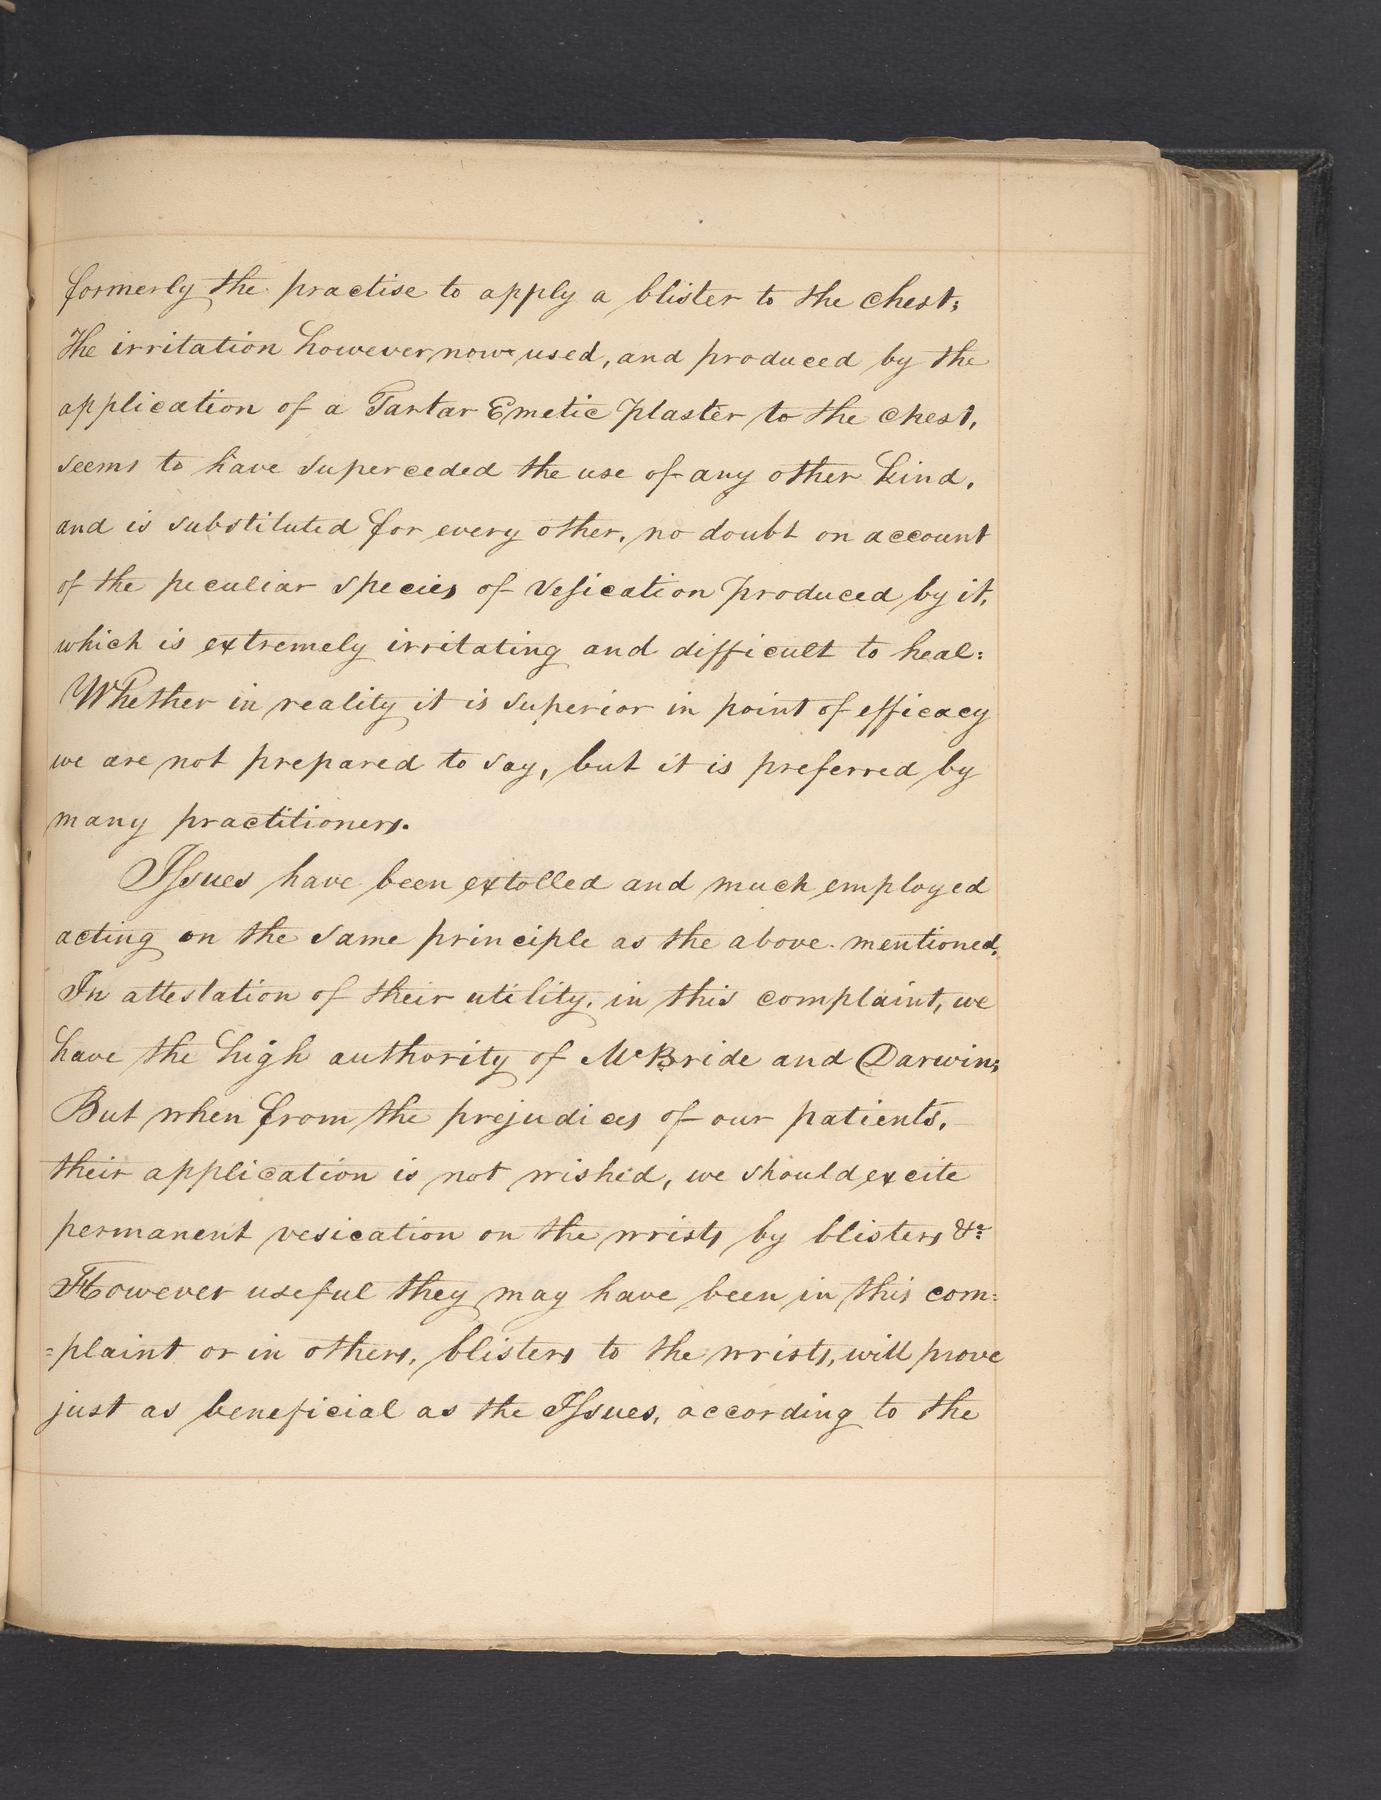 formerly the practise to apply a blister to the chest;
The irritation however now used, and produced by the
application of a Tartar Emetic plaster to the chest,
seems to have superceded the use of any other kind,
and is substituted for every other, no doubt on account
of the peculiar species of vesication produced by it,
which is extremely irritating and difficult to heal:
Whether in reality it is superior in point of efficacy
we are not prepared to say, but it is preferred by
many practitioners.
Issues have been extolled and much employed
acting on the same principle as the above mentioned,
In attestation of their utility, in this complaint, we
have the high authority of McBride and Darwin;
But when from the prejudices of our patients,
their application is not wished, we should excite
permanent vesication on the wrists by blisters &c
However useful they may have been in this com=
=plaint or in others, blisters to the wrists, will prove
just as beneficial as the Issues, according to the